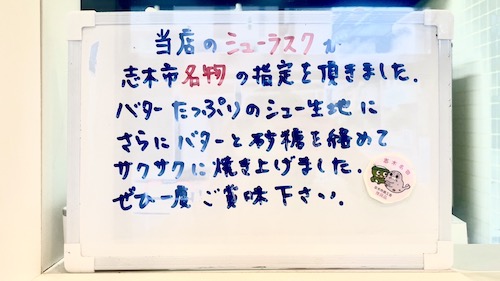 当店のシューラスクが
志木市名物の指定を頂きました。
バターたっぷりのシュー生地に
さらにバターと砂糖を絡めて
サクサクに焼き上げました。
ぜひ一度ご賞味下さい。
志木名物